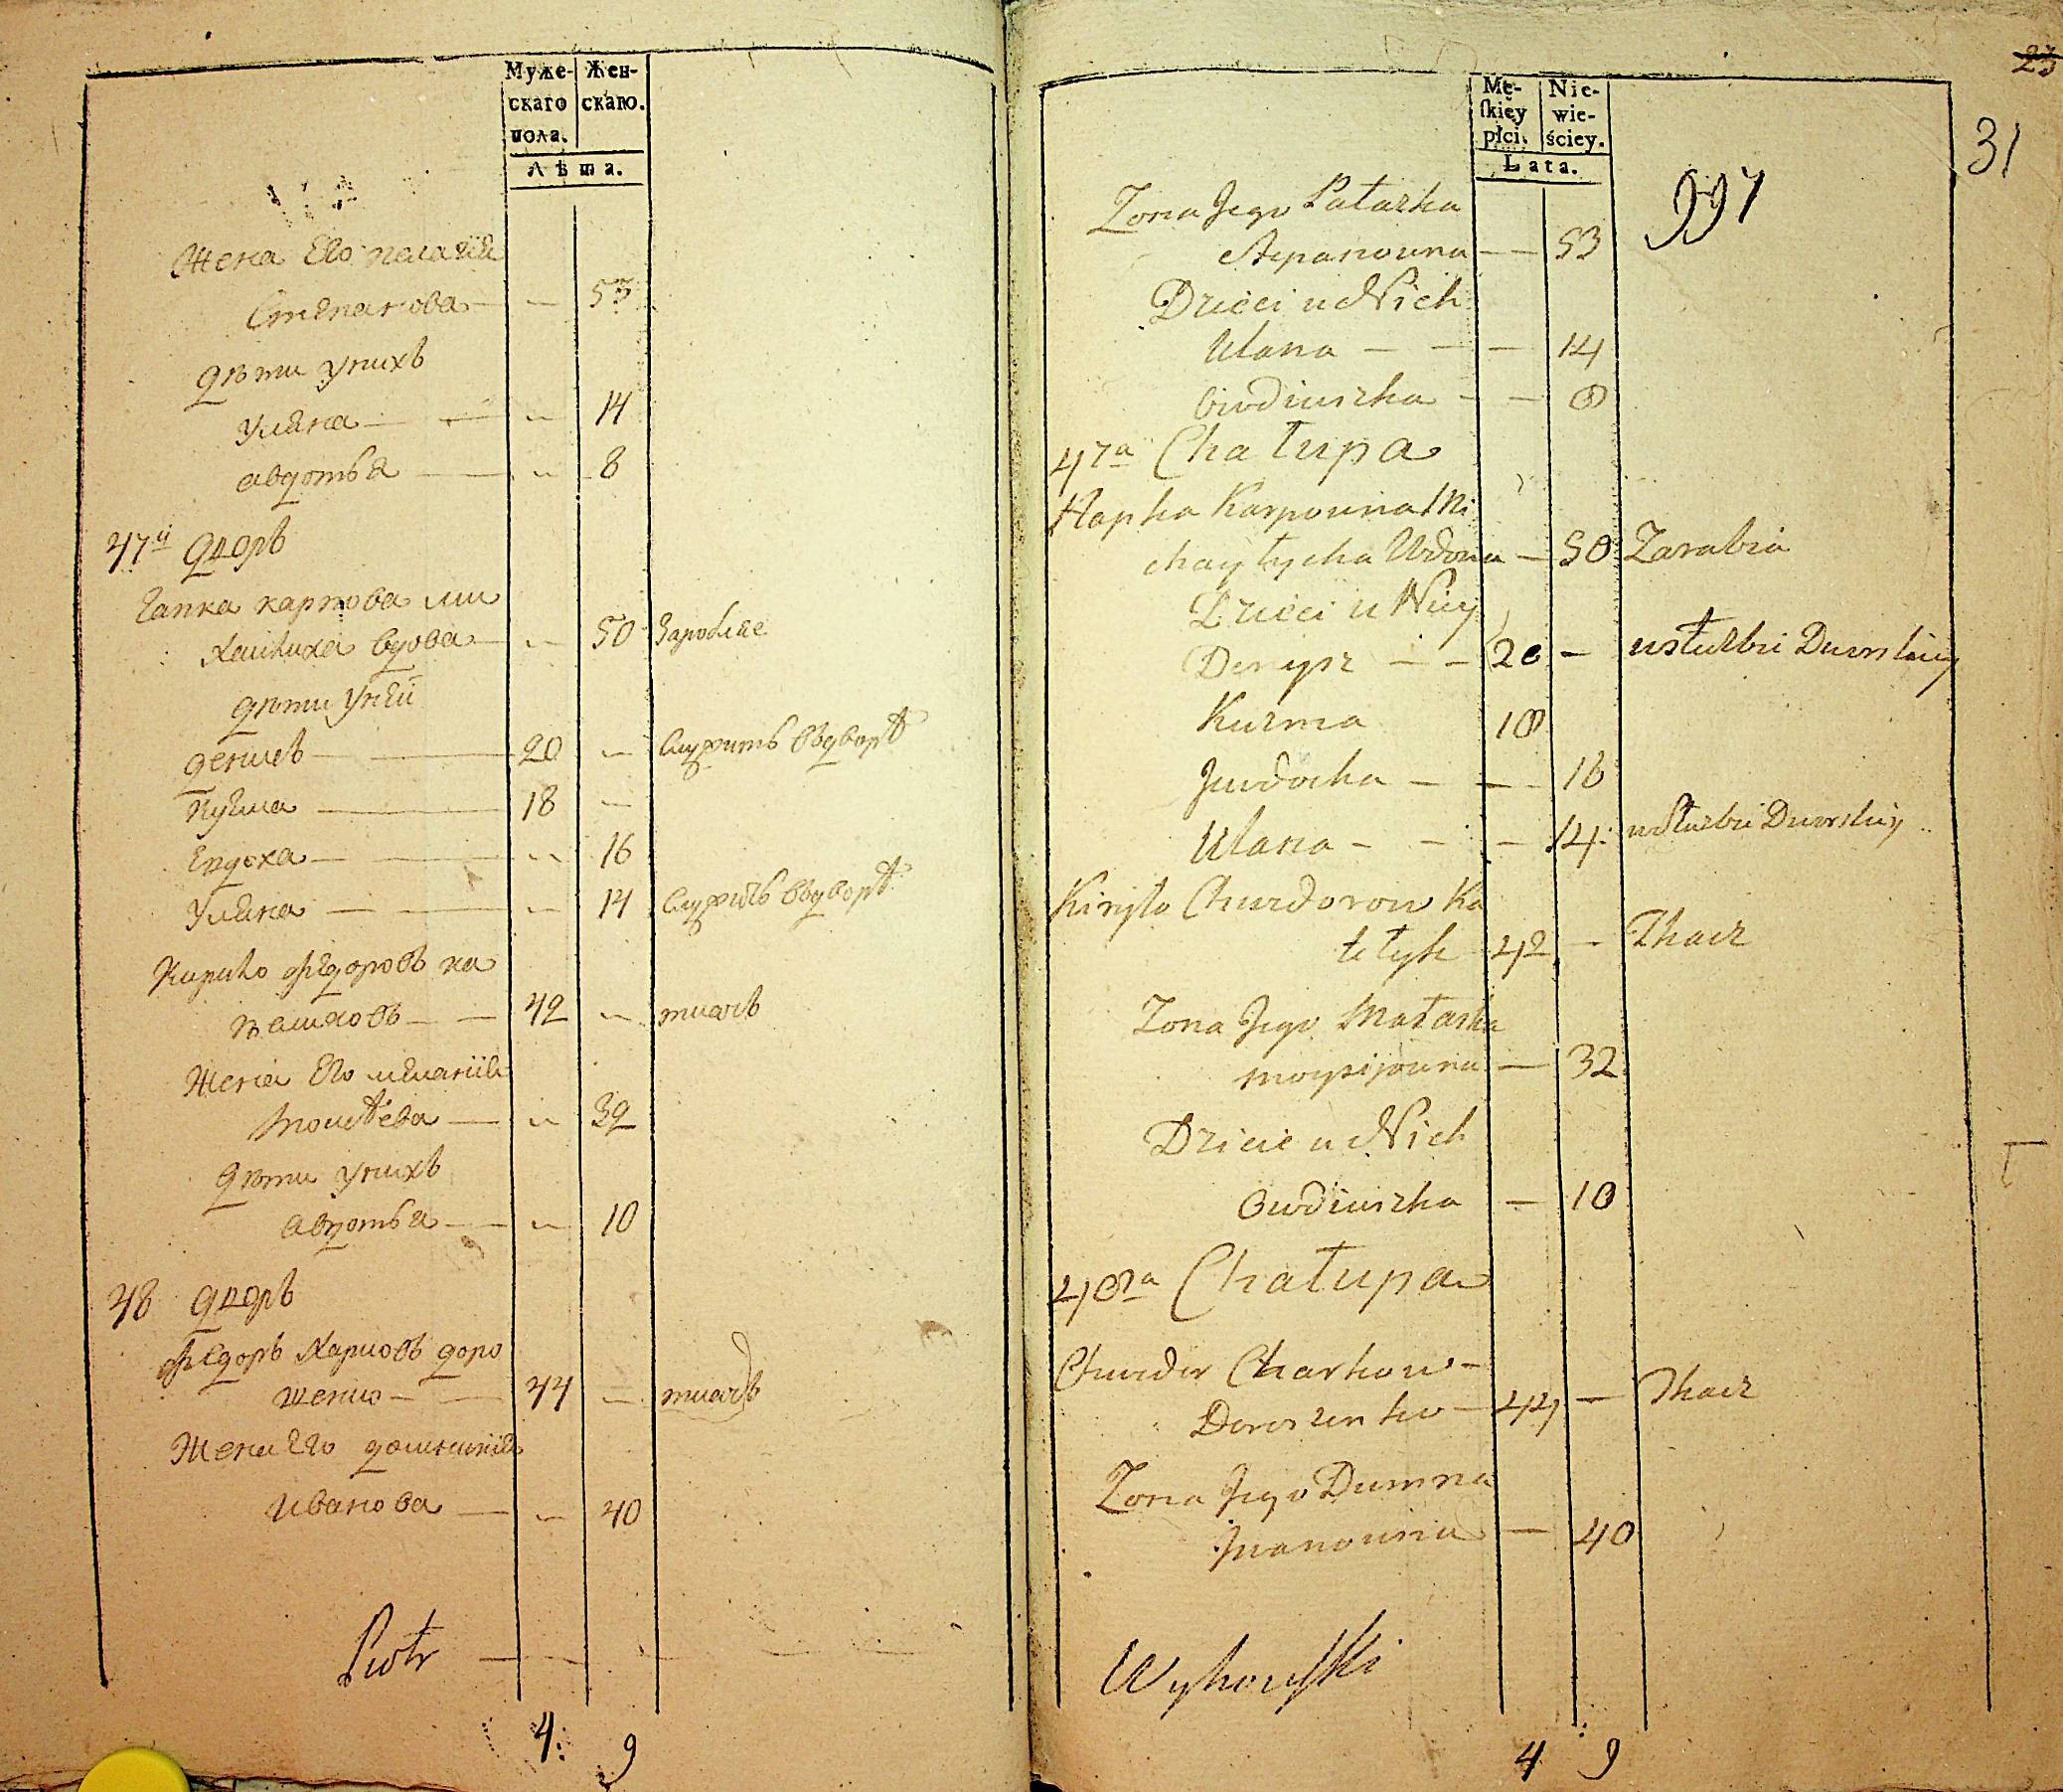 Муже-
скаго
пола.
Жен-
скаго.
Лѣта.
Жена Его пелагия
Степанова — — 53
дѣти уних
Уляна — — 14
авдотья — — 8
47й Дворъ
Гапка карпова ми
хайлиха вдова — — 50 Заробляе
дѣти унеи
денисъ — 20 — Служитъ вдворѣ
Кузма — 18 —
Евдоха — — 16
Уляна — — 14 Служитъ вдворѣ
Кирило Федоровъ ка
— 42 — ткачъ
Жена Его мелания
Мосѣева — — 32
дѣти унихъ
авдотья — — 10
48 Дворъ
Федоръ Харковъ доро
шенко — 44 — ткачъ
Жена Его
Иванова — — 40
Piotr
4: 9
23
31
Mę-
skiey
płci.
Nie-
wie-
ściey.
Lata.
997
Zona Jego Pałazka
Stepanowna — — 53
Dzieci u Nich
Ulana — — — 14
Owdiuszka — — 8
47a Chałupa
Hapka Karpowna Mi
chayłycha Wdowa — 50 Zarabia
Dzieci u Niey
Denysz — — 20 — w służbie Dworskiey
Kuzma 18
Jewdocha — — 16
Ulana — — — 14: w służbie Dworskiey
Kiryło Chwedorow Ka
42 — Tkacz
Zona Jego Małaska
Moysijowna — 32
Dzieie u Nich
Owdiuszka — 10
48a Chałupa
Chwedor Charkow —
Doroszenko — 44 — Tkacz
Zona Jego Dumna
Iwanowna — 40
Wyhowski
4 9